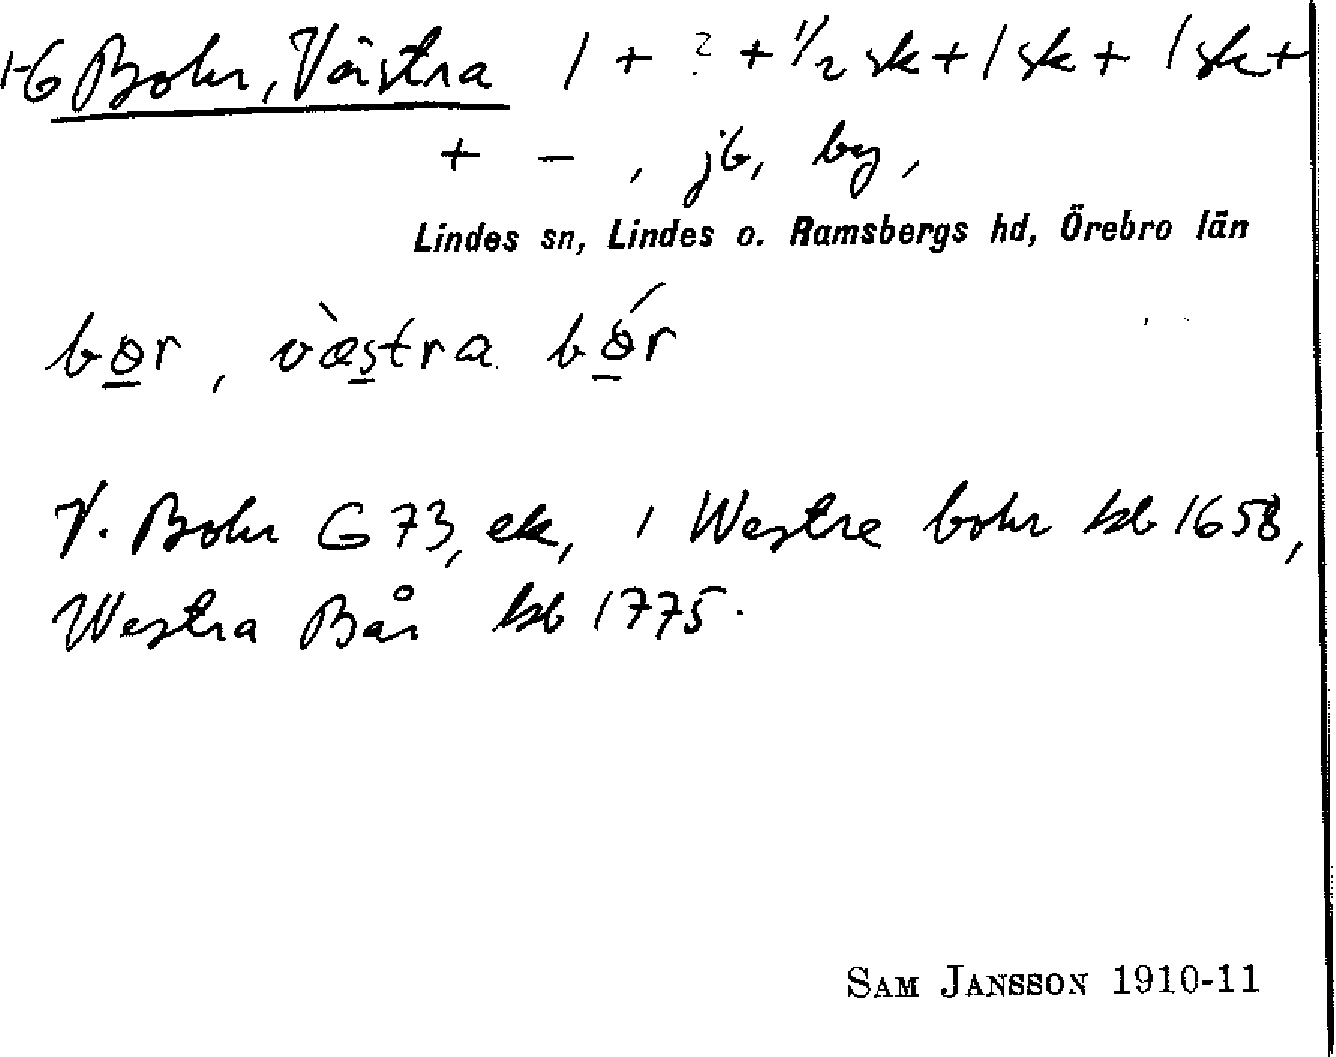 1-6 Bohr, Västra 1 + ? + 1/2 sk + 1 sk + 1 sk +
+ – , jb, by,
Lindes sn, Lindes o. Ramsbergs hd, Örebro län
bər, væ̀stra bə́r
V. Bohr G 73, ek, 1 Westre bohr kb 1658,
Westra Bår kb 1775.
SAM JANSSON 1910-11